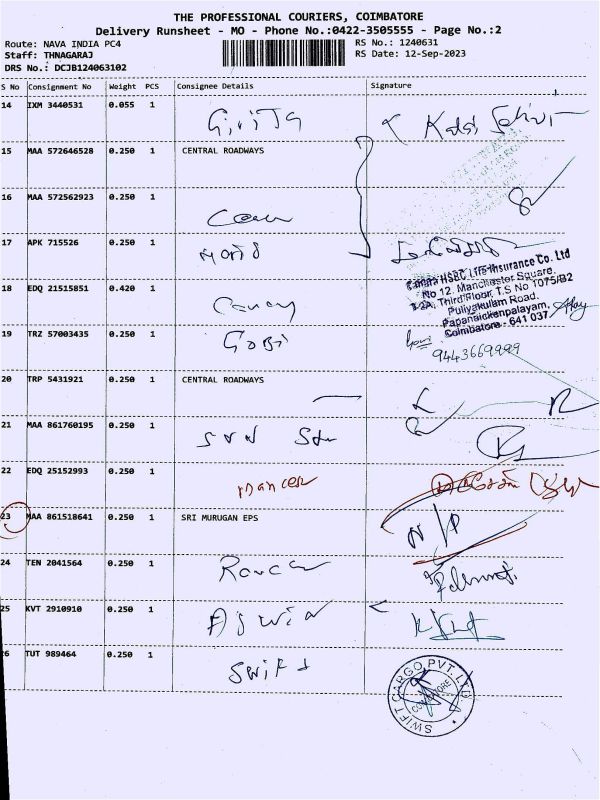 THE PROFESSIONAL COURIERS, COIMBATORE
Delivery Runsheet - MO - Phone No.:0422-3505555 - Page No.:2
Route: NAVA INDIA PC4 RS No.: 1240631
Staff: THNAGARAJ RS Date: 12-Sep-2023
DRS No.: DCJB124063102
S No Consignment No Weight PCS Consignee Details Signature
14 IXM 3440531 0.055 1
15 MAA 572646528 0.250 1 CENTRAL ROADWAYS
16 MAA 572562923 0.250 1
17 APK 715526 0.250 1
18 EDQ 21515851 0.420 1
Canara HSBC Life Insurance Co. Ltd
No 12, Manchester Square,
1-2A, Third Floor, T.S No 1075/B2
Puliyakulam Road,
Papanaickenpalayam,
Coimbatore - 641 037
19 TRZ 57003435 0.250 1 Gobi
9443669999
20 TRP 5431921 0.250 1 CENTRAL ROADWAYS
21 MAA 861760195 0.250 1
22 EDQ 25152993 0.250 1
23 MAA 861518641 0.250 1 SRI MURUGAN EPS N/P
24 TEN 2041564 0.250 1
25 KVT 2910910 0.250 1 Aswin
26 TUT 989464 0.250 1 Swift
SWIFT CARGO PVT. LTD.
COIMBATORE